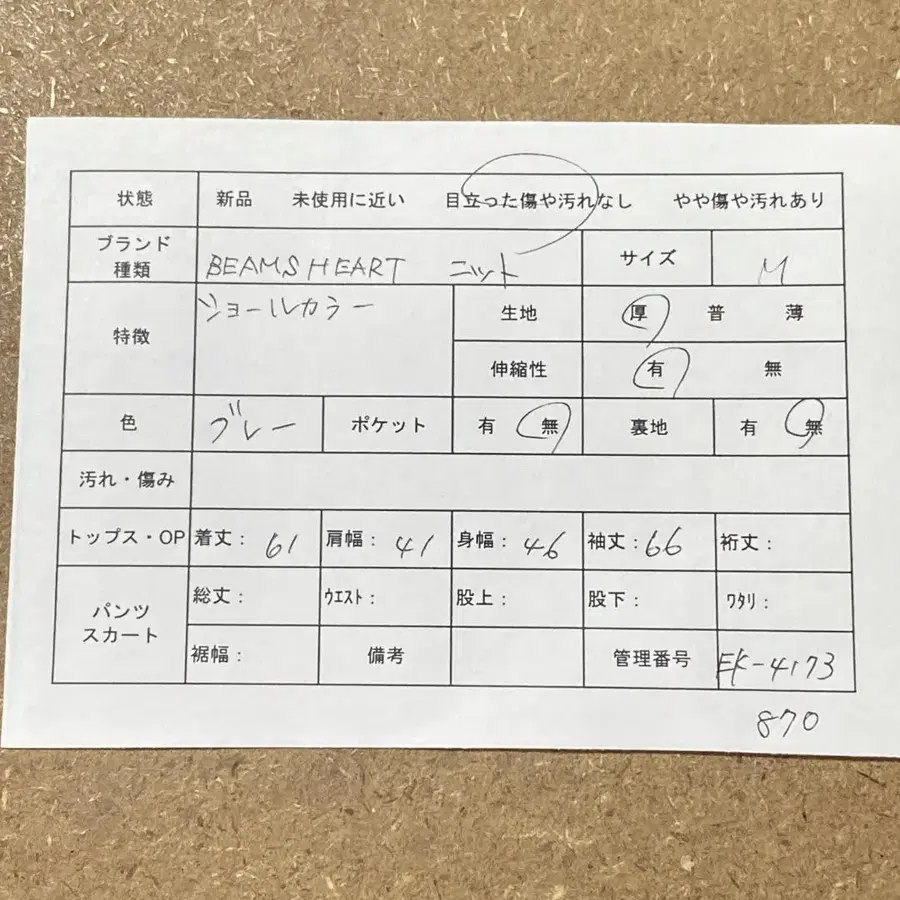 状態 新品 未使用に近い 目立った傷や汚れなし やや傷や汚れあり
ブランド
種類 BEAMS HEART ニット サイズ M
特徴 ショールカラー 生地 厚 普 薄
伸縮性 有 無
色 グレー ポケット 有 無 裏地 有 無
汚れ・傷み
トップス・OP 着丈: 61 肩幅: 41 身幅: 46 袖丈: 66 裄丈:
パンツ
スカート 総丈: ウエスト: 股上: 股下: ワタリ:
裾幅: 備考 管理番号 EK-4173
870